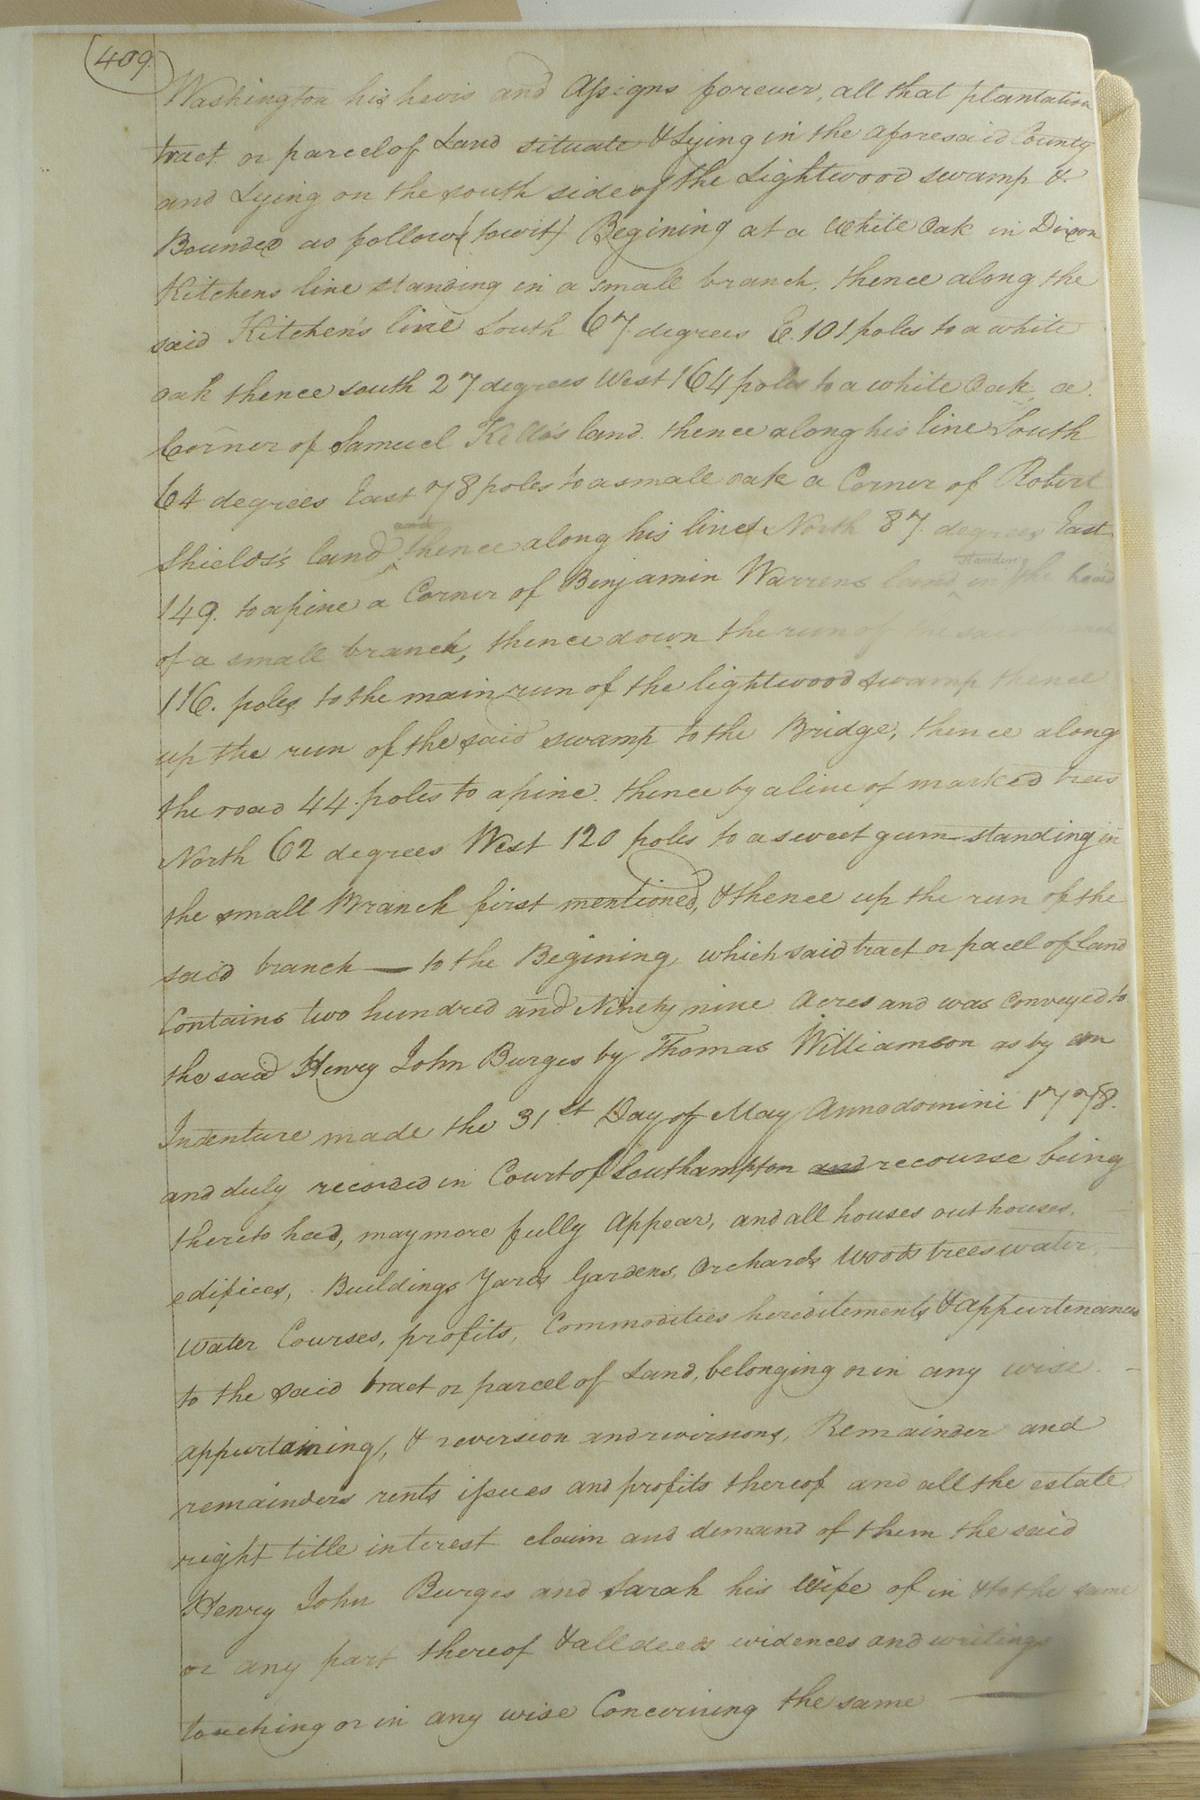 409.
Washington his hevis and Assigns forever, all that plantation
tract or parcel of Land situate & Lying in the aforesaid County
and Lying on the south side of the Lightwood swamp &
Bounded as follows (towit) Begining at a White Oak in Dixon
Kitchens line standing in a small branch, thence along the
said Kitchen's line South 67 degrees E. 101 poles to a white
oak thence south 27 degrees West 164 poles to a white Oak, a
Corner of Samuel Kello's land. thence along his line South
64 degrees East 78 poles to a small oak a Corner of Robert
Shields's land, and thence along his lines North 87. degrees East
149. to a pine a Corner of Benjamin Warrens land standing in the head
of a small branch, thence down the run of the
116. poles to the main run of the lightwood swamp thence
up the run of the said swamp to the Bridge, thence along
the road 44. poles to a pine. thence by a line of marked trees
North 62 degrees West 120 poles to a sweet gum standing in
the small Branch first mentioned, & thence up the run of the
said branch — to the Begining, which said tract or pacel of land
Contains two hundred and Ninety nine Acres and was conveyed to
the said Henry John Burges by Thomas Williamson as by an
Indenture made the 31st Day of May Annodomini 1778.
and duly recorded in Court of Southampton and recourse being
thereto had, may more fully Appear, and all houses out houses,
edifices, Buildings Yards Gardens, Orchards Woods trees water,
water Courses, profits, Commodities heriditements & appurtenances
to the said tract or parcel of Land, belonging or in any wise
appurtaining, & reversion and reversions, Remainder and
remainders rents issues and profits thereof and all the estate
right title interest claim and demand of them the said
Henry John Burges and Sarah his Wife of in & to the same
or any part thereof & all deeds evidences and writings
touching or in any wise Concerning the same